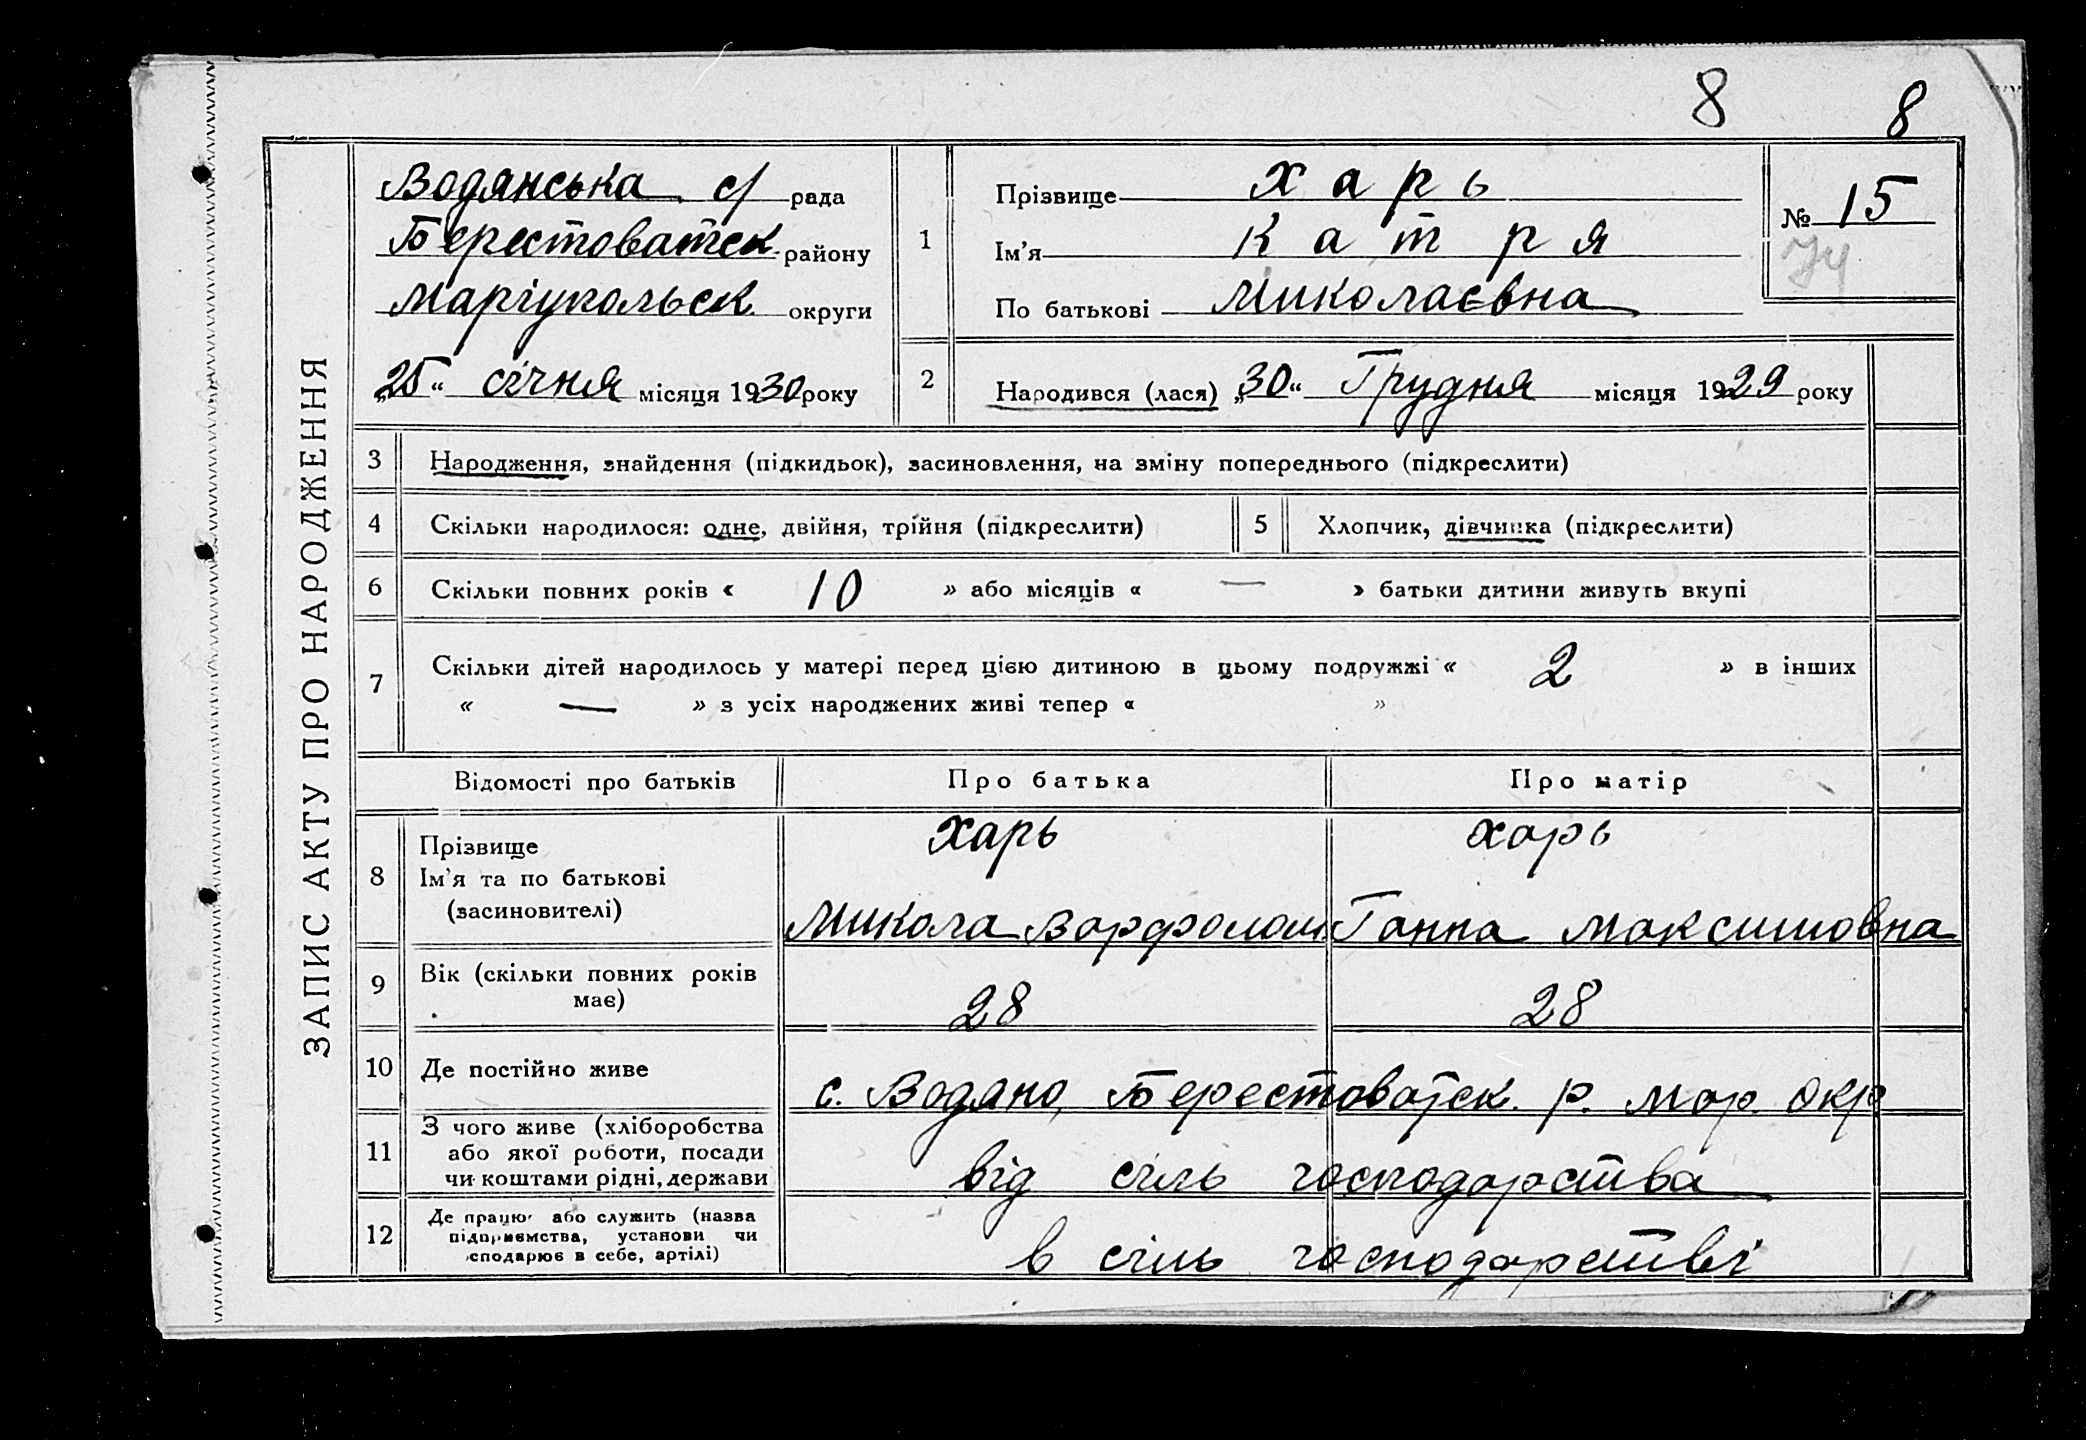 8 8
ЗАПИС АКТУ ПРО НАРОДЖЕННЯ
Водянська с/ рада
Берестоватськ району
Маріупольськ. округи
„25“ січня місяця 1930 року
1
Прізвище Харь
Ім'я Катря
По батькові Миколаєвна
№ 15
74
2 Народився (лася) „30“ Грудня місяця 1929 року
3 Народження, знайдення (підкидьок), засиновлення, на зміну попереднього (підкреслити)
4 Скільки народилося: одне, двійня, трійня (підкреслити) 5 Хлопчик, дівчинка (підкреслити)
6 Скільки повних років « 10 » або місяців « — » батьки дитини живуть вкупі
7 Скільки дітей народилось у матері перед цією дитиною в цьому подружжі « 2 » в інших
« — » з усіх народжених живі тепер « »
Відомості про батьків Про батька Про матір
8 Прізвище Харь Харь
Ім'я та по батькові
(засиновителі) Микола Варфолом Ганна Максимовна
9 Вік (скільки повних років
має) 28 28
10 Де постійно живе с. Водяно, Берестоватськ. р. Мар. Окр
11 З чого живе (хліборобства
або якої роботи, посади
чи коштами рідні, держави від сіль господарства
12 Де працює або служить (назва
підприємства, установи чи
господарює в себе, артілі) в сіль господарстві